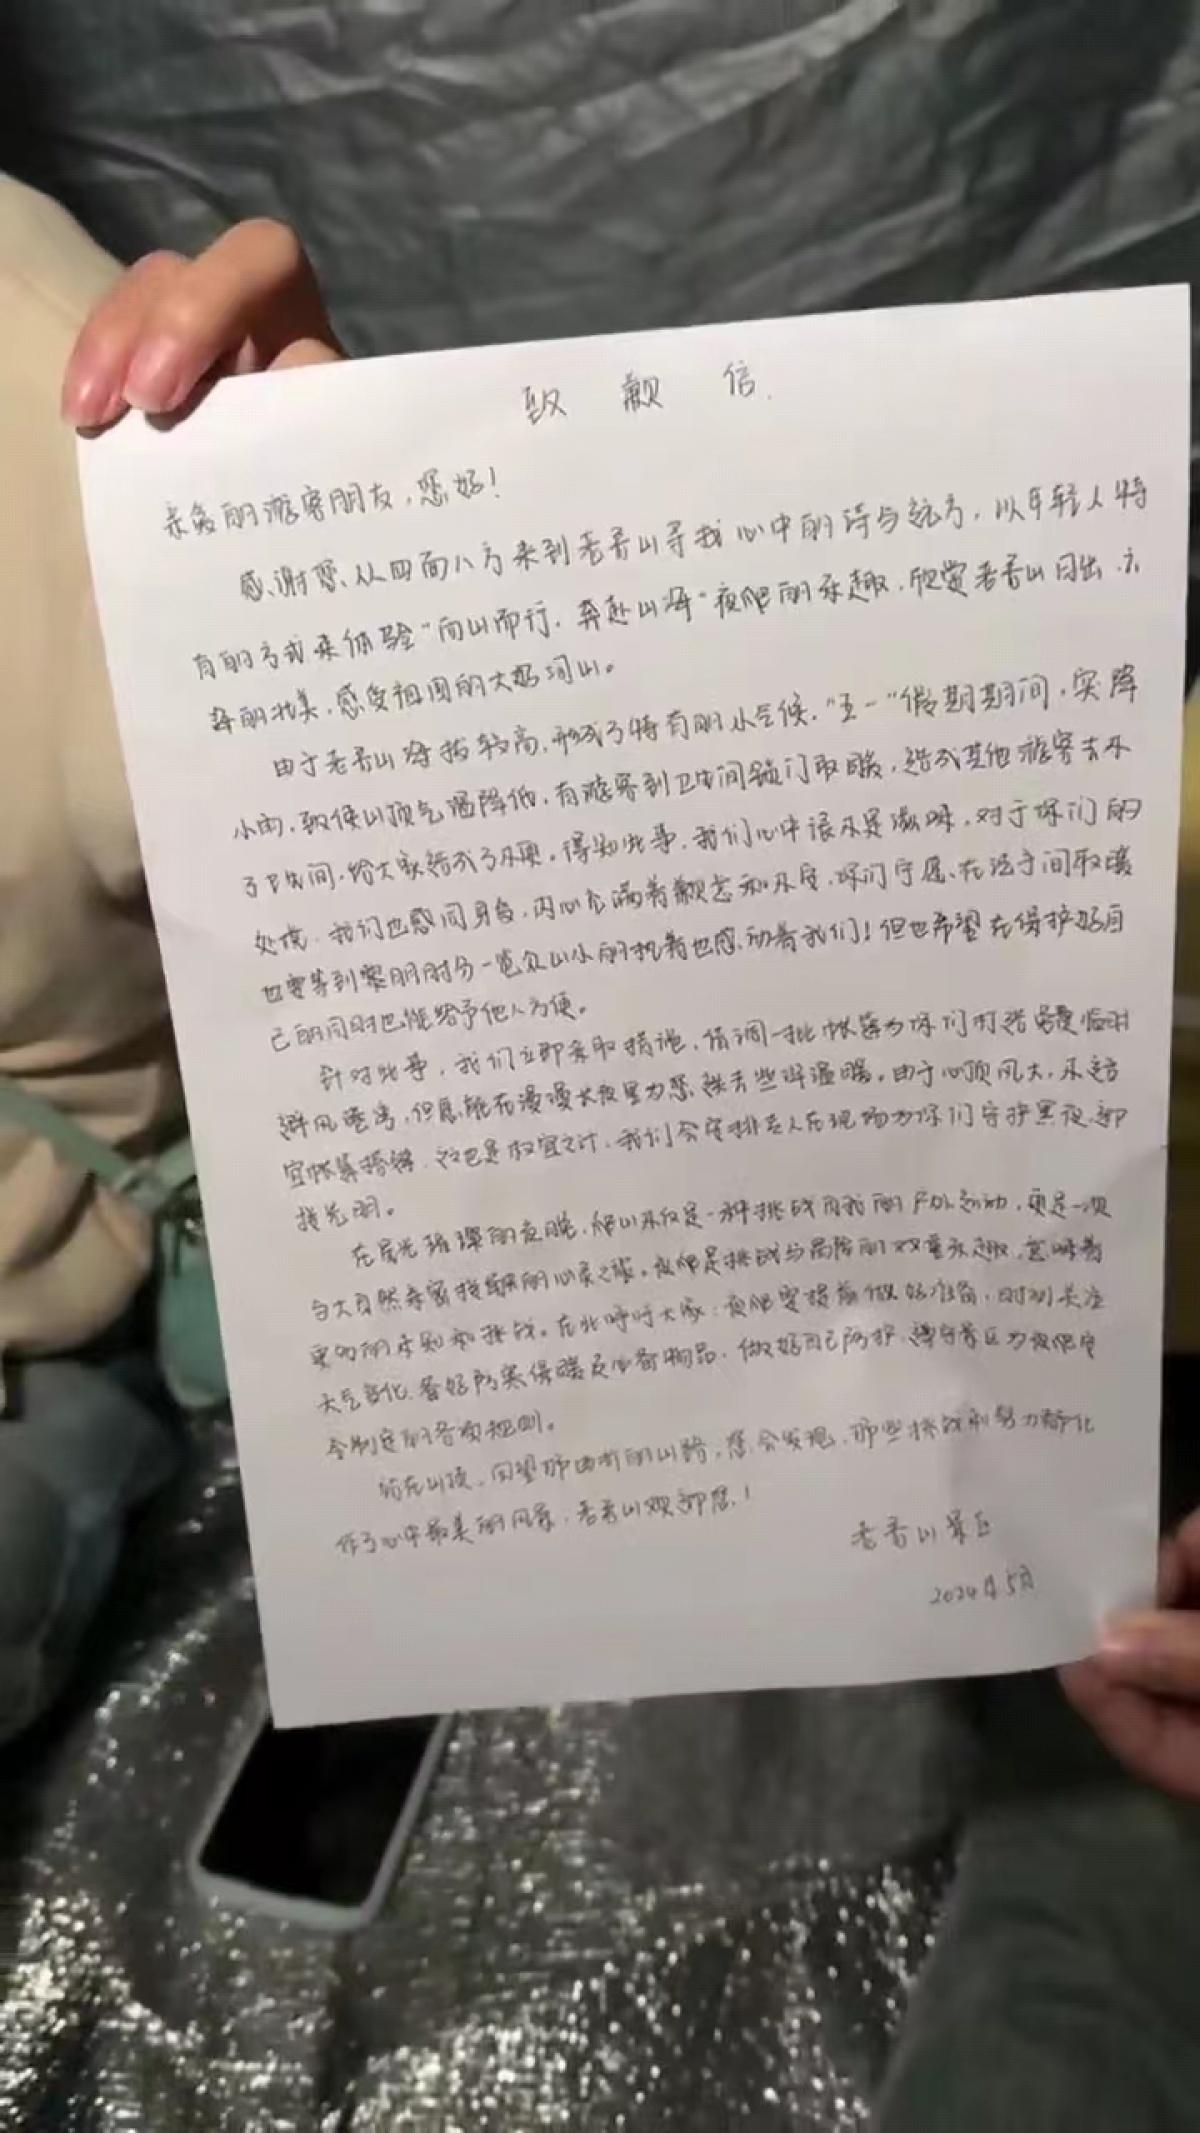 致歉信
亲爱的游客朋友，您好！
感谢您从四面八方来到老君山寻找心中的诗与远方，以年轻人特
有的方式来体验“向山而行，奔赴山海”夜爬的乐趣，欣赏老君山日出、云
海的壮美，感受祖国的大好河山。
由于老君山海拔较高，形成了特有的小气候，“五一”假期期间，突降
小雨，致使山顶气温降低，有游客到卫生间锁门取暖，造成其他游客去不
了卫生间，给大家造成了不便。得知此事，我们心中很不是滋味，对于你们的
处境，我们也感同身受，内心充满着歉意和不安，你们宁愿在洗手间取暖
也要等到黎明时分一览众山小的执着也感动着我们！但也希望在保护好自
己的同时也能给予他人方便。
针对此事，我们立即采取措施，借调一批帐篷为你们打造简易临时
避风港湾，但愿能在漫漫长夜里为您送去些许温暖。由于山顶风大，不适
宜帐篷搭建，这也是权宜之计，我们会安排专人在现场为你们守护黑夜，迎
接光明。
在星光璀璨的夜晚，爬山不仅是一种挑战自我的户外运动，更是一次
与大自然亲密接触的心灵之旅。夜爬是挑战与冒险的双重乐趣，意味着
更多的未知和挑战。在此呼吁大家：夜爬要提前做好准备，时刻关注
天气变化，备好防寒保暖及必备物品，做好自己防护，遵守景区为夜爬安
全制定的各项规则。
站在山顶，回望那曲折的山路，您会发现，那些挑战和努力都化
作了心中最美的风景，老君山欢迎您！
老君山景区
2024年5月